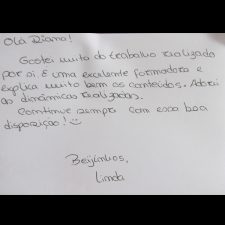 Olá Diana!
Gostei muito do trabalho realizado
por si. É uma excelente formadora e
explica muito bem os conteúdos. Adorei
as dinâmicas realizadas.
Continue sempre com essa boa
disposição! ☺
Beijinhos,
Linda